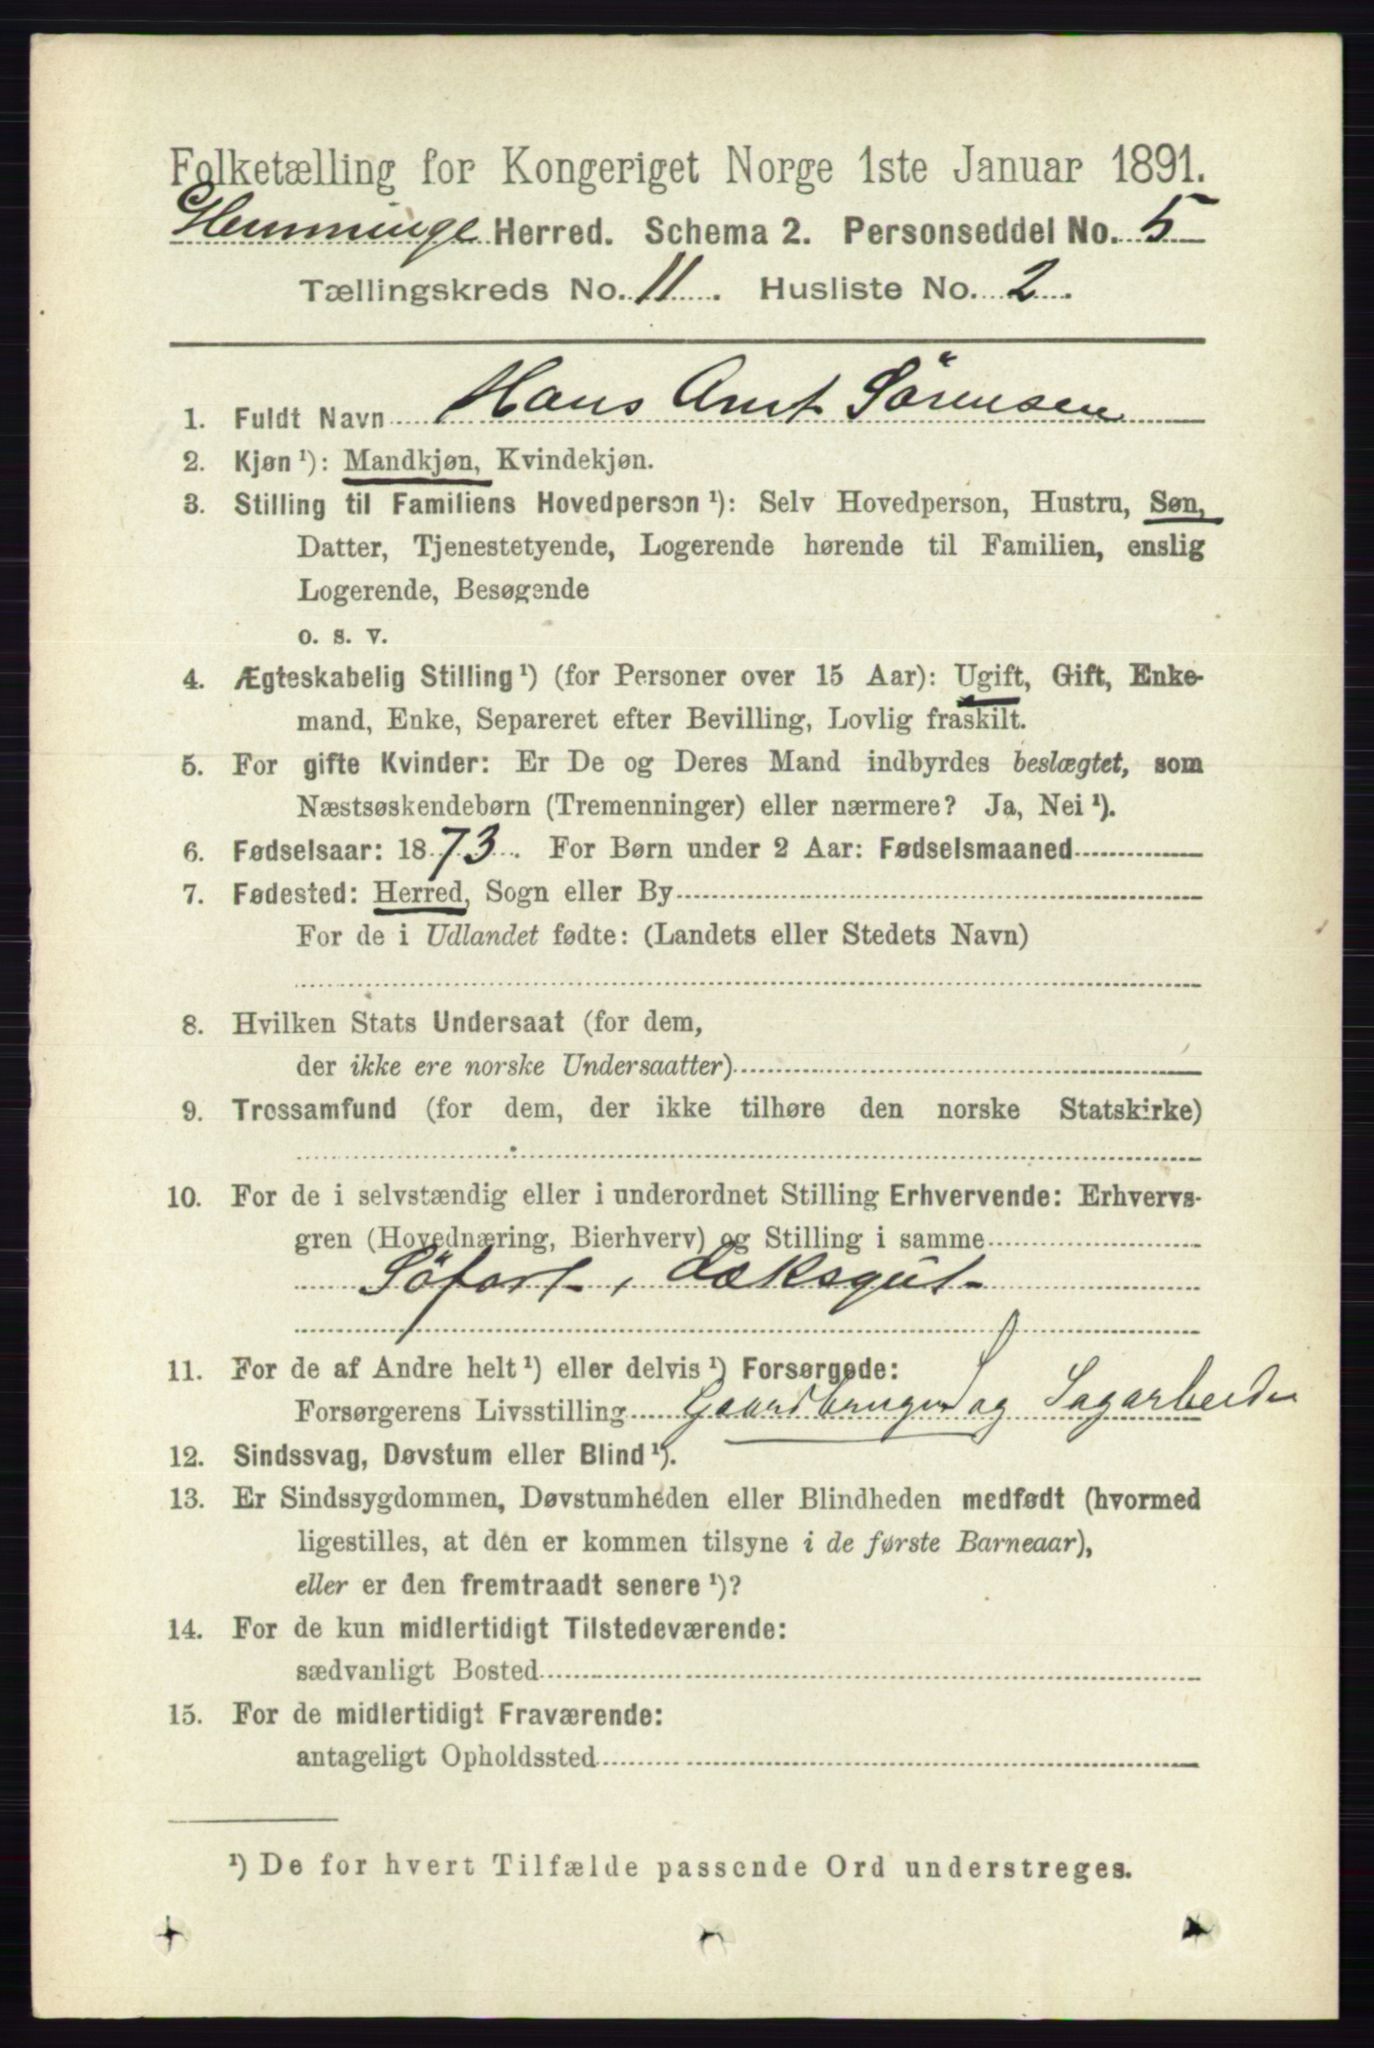 Folketælling for Kongeriget Norge 1ste Januar 1891.
Hemminge Herred. Schema 2. Personseddel No. 5
Tællingskreds No. 11. Husliste No. 2.
1. Fuldt Navn Hans Arnt Sörensen
2. Kjøn ¹): Mandkjøn, Kvindekjøn.
3. Stilling til Familiens Hovedperson ¹): Selv Hovedperson, Hustru, Søn,
Datter, Tjenestetyende, Logerende hørende til Familien, enslig
Logerende, Besøgende
o. s. v.
4. Ægteskabelig Stilling ¹) (for Personer over 15 Aar): Ugift, Gift, Enke-
mand, Enke, Separeret efter Bevilling, Lovlig fraskilt.
5. For gifte Kvinder: Er De og Deres Mand indbyrdes beslægtet, som
Næstsøskendebørn (Tremenninger) eller nærmere? Ja, Nei ¹).
6. Fødselsaar: 1873. For Børn under 2 Aar: Fødselsmaaned
7. Fødested: Herred, Sogn eller By
For de i Udlandet fødte: (Landets eller Stedets Navn)
8. Hvilken Stats Undersaat (for dem,
der ikke ere norske Undersaatter)
9. Trossamfund (for dem, der ikke tilhøre den norske Statskirke)
10. For de i selvstændig eller i underordnet Stilling Erhvervende: Erhvervs-
gren (Hovednæring, Bierhverv) og Stilling i samme
Söfart, Dæksgut
11. For de af Andre helt ¹) eller delvis ¹) Forsørgede:
Forsørgerens Livsstilling Gaardbruger og Sagarbeider
12. Sindssvag, Døvstum eller Blind ¹).
13. Er Sindssygdommen, Døvstumheden eller Blindheden medfødt (hvormed
ligestilles, at den er kommen tilsyne i de første Barneaar),
eller er den fremtraadt senere ¹)?
14. For de kun midlertidigt Tilstedeværende:
sædvanligt Bosted
15. For de midlertidigt Fraværende:
antageligt Opholdssted
¹) De for hvert Tilfælde passende Ord understreges.